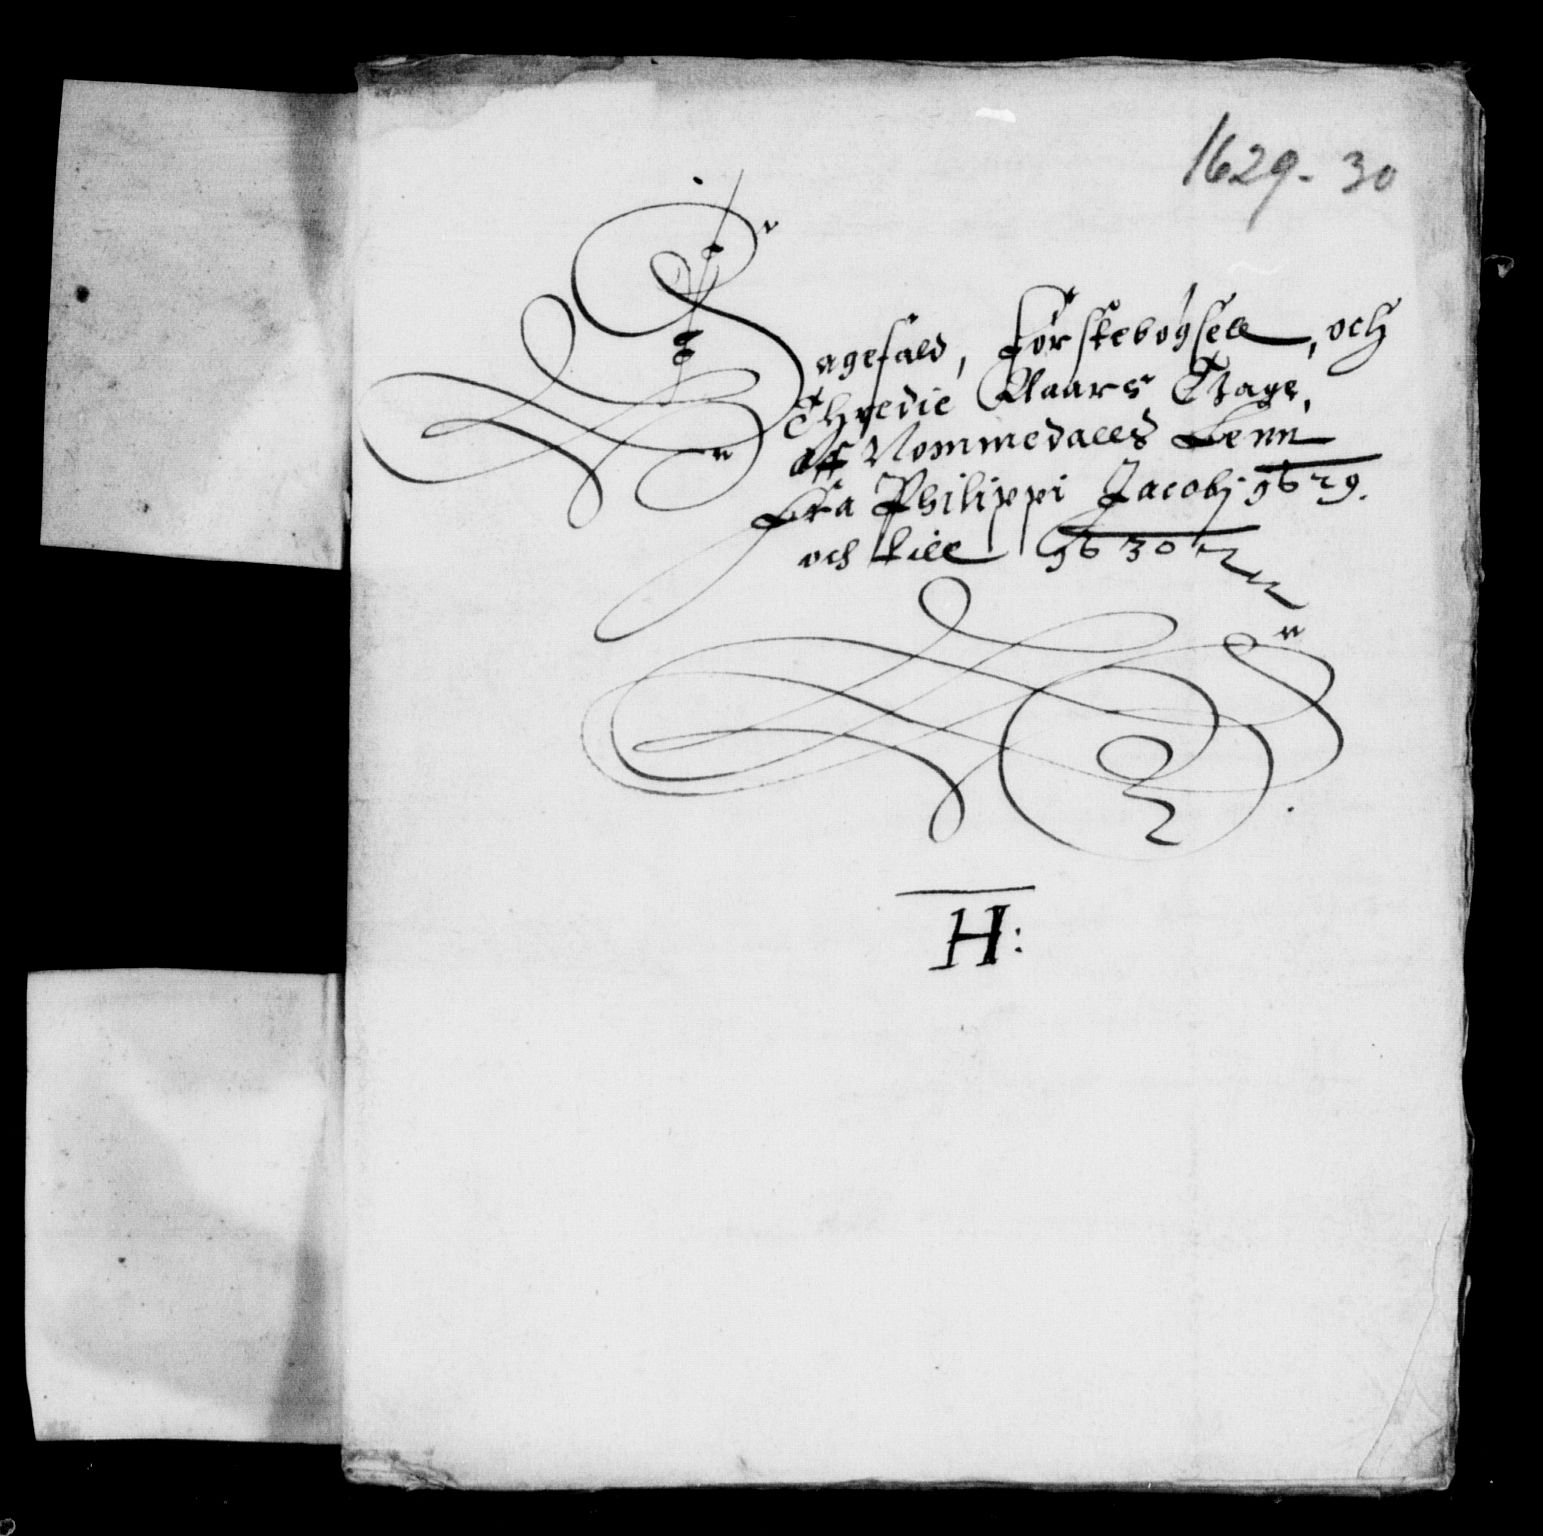 1629-30
Sagefald, Førstebøgsell, och
Thredie Aaars Tage,
Aff Nommedalls Lenn
Fra Philippi Jacobj 1629.
och till 1630
H: